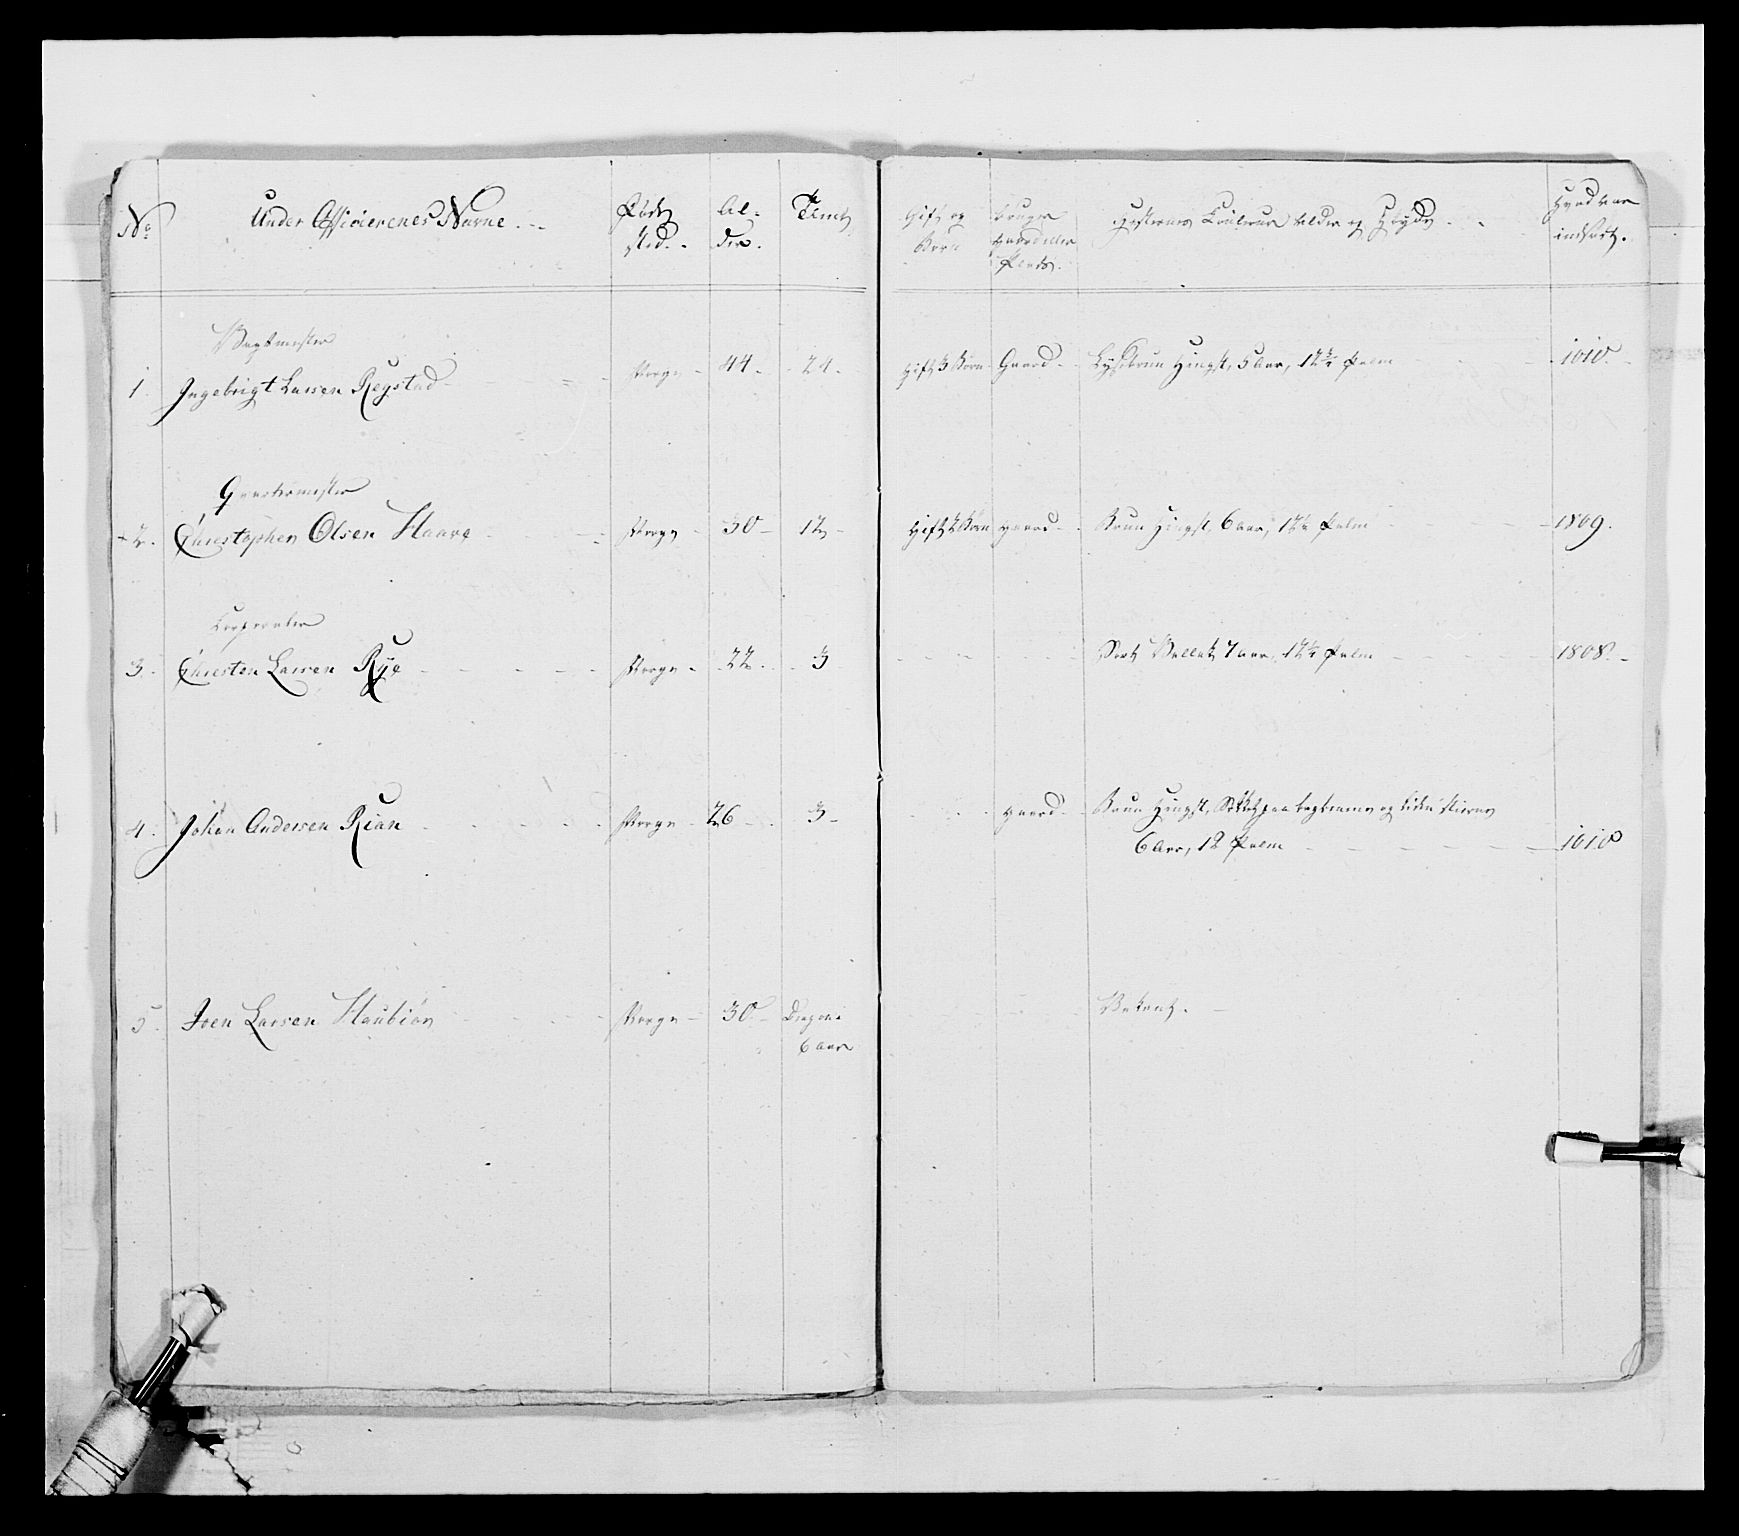 No Under Officierenes Navne. Føde sted. Al- der. Tient Gift og Børn bruger Gaard eller Plads. Hesternes Couleur Alder og Høyde Hvad aar indført.
Vagtmester
1. Ingebrigt Larsen Reystad Norge 44 24 Gift 3 Børn Gaard Lysebrun Hingst, 5 Aar, 12 3/4 Palm 1810
Qvartermester
2. Christophen Olsen Haare Norge 30 12 Gift 2 Børn Gaard Brun Hingst, 6 Aar, 12 1/2 Palm 1809.
Corporaler
3. Christen Larsen Rye Norge 22 3 Sort Vallak 7 Aar, 12 1/2 Palm 1808.
4. Johan Andersen Rian Norge 26 3 Gaard Brun Hingst, paa og liden Stierne
6 Aar, 12 Palm 1810
5. Joen Larsen Haubiøn Norge 30 Dragon Vakant.
6 Aar